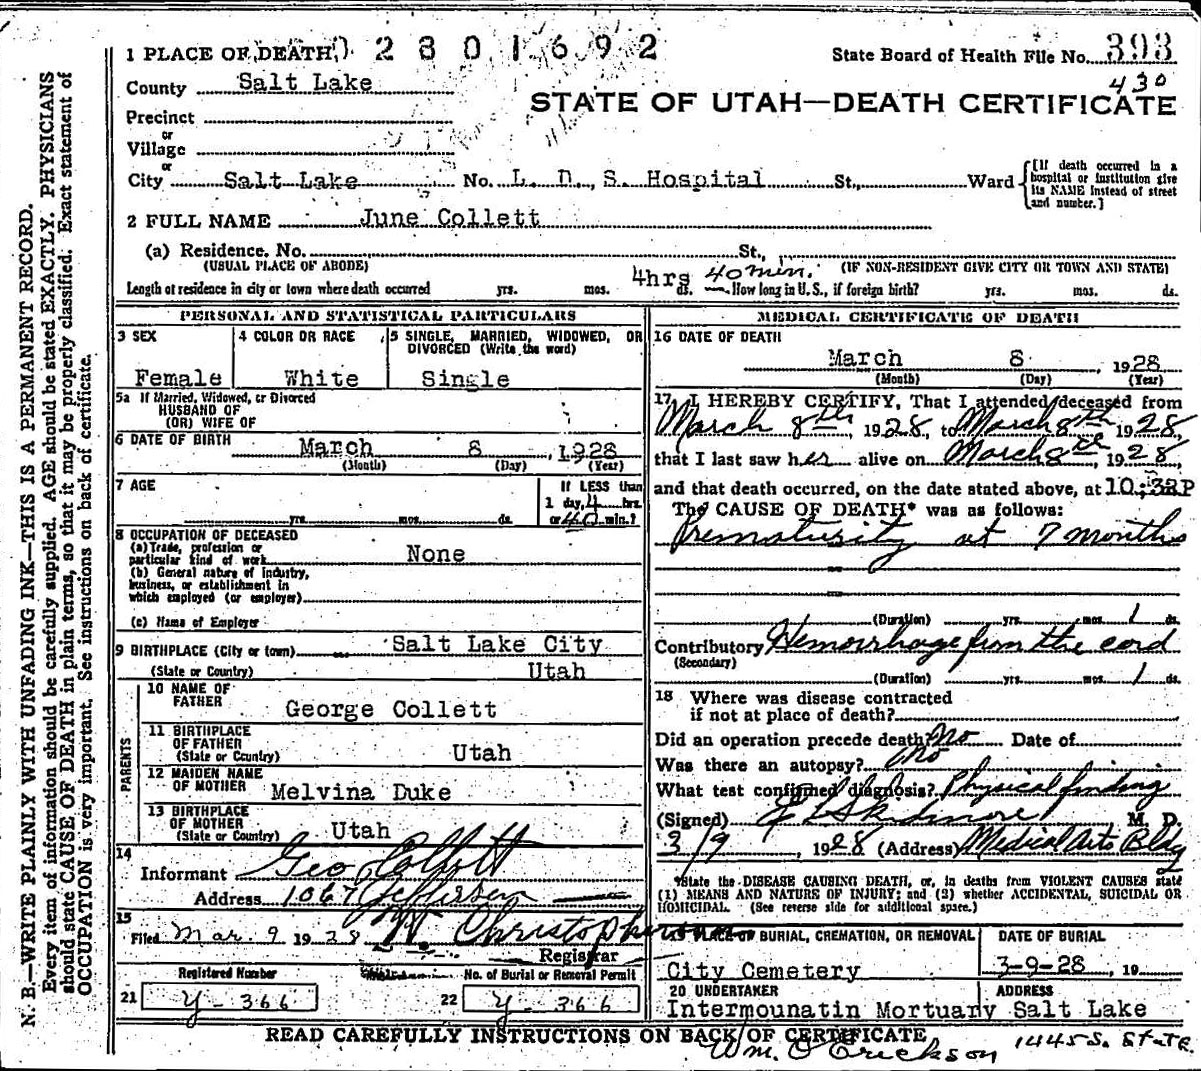 N. B.—WRITE PLAINLY WITH UNFADING INK—THIS IS A PERMANENT RECORD.
Every item of information should be carefully supplied. AGE should be stated EXACTLY. PHYSICIANS
should state CAUSE OF DEATH in plain terms, so that it may be properly classified. Exact statement of
OCCUPATION is very important. See instructions on back of certificate.
1 PLACE OF DEATH 02801692
State Board of Health File No. 393
430
County Salt Lake
STATE OF UTAH—DEATH CERTIFICATE
Precinct
or
Village
or
City Salt Lake No. L. D. S. Hospital St., Ward
[If death occurred in a
hospital or institution give
its NAME instead of street
and number.]
2 FULL NAME June Collett
(a) Residence. No. St.,
(USUAL PLACE OF ABODE) (IF NON-RESIDENT GIVE CITY OR TOWN AND STATE)
Length of residence in city or town where death occurred yrs. mos. 4hrs ds. 40 min. How long in U. S., if foreign birth? yrs. mos. ds.
PERSONAL AND STATISTICAL PARTICULARS
3 SEX 4 COLOR OR RACE 5 SINGLE, MARRIED, WIDOWED, OR
DIVORCED (Write the word)
Female White Single
5a If Married, Widowed, or Divorced
HUSBAND OF
(OR) WIFE OF
6 DATE OF BIRTH March 8, 1928
(Month) (Day) (Year)
7 AGE yrs. mos. ds.
If LESS than
1 day, 4 hrs.
or 40 min.?
8 OCCUPATION OF DECEASED
(a) Trade, profession or
particular kind of work None
(b) General nature of industry,
business, or establishment in
which employed (or employer)
(c) Name of Employer
9 BIRTHPLACE (City or town) Salt Lake City
(State or Country) Utah
PARENTS
10 NAME OF
FATHER George Collett
11 BIRTHPLACE
OF FATHER
(State or Country) Utah
12 MAIDEN NAME
OF MOTHER Melvina Duke
13 BIRTHPLACE
OF MOTHER
(State or Country) Utah
14
Informant Geo Collett
Address 1067 Jefferson
15
Filed Mar. 9 1928 Christopherson
Registrar
Registered Number No. of Burial or Removal Permit
21 Y-366 22 Y-366
MEDICAL CERTIFICATE OF DEATH
16 DATE OF DEATH
March 8, 1928
(Month) (Day) (Year)
17 I HEREBY CERTIFY, That I attended deceased from
March 8th, 1928, to March 8th 1928,
that I last saw her alive on March 8th, 1928,
and that death occurred, on the date stated above, at 10:32P
The CAUSE OF DEATH* was as follows:
Prematurity at 7 months
(Duration) yrs. mos. 1 ds.
Contributory Hemorrhage from the cord
(Secondary)
(Duration) yrs. mos. 1 ds.
18 Where was disease contracted
if not at place of death?
Did an operation precede death? No Date of
Was there an autopsy? No
What test confirmed diagnosis? Physical finding
(Signed) E L Skidmore M. D.
3/9, 1928 (Address) Medical Arts Bldg
*State the DISEASE CAUSING DEATH, or, in deaths from VIOLENT CAUSES state
(1) MEANS AND NATURE OF INJURY; and (2) whether ACCIDENTAL, SUICIDAL OR
HOMICIDAL. (See reverse side for additional space.)
19 PLACE OF BURIAL, CREMATION, OR REMOVAL DATE OF BURIAL
City Cemetery 3-9-28, 19
20 UNDERTAKER ADDRESS
Intermounatin Mortuary Salt Lake
READ CAREFULLY INSTRUCTIONS ON BACK OF CERTIFICATE
Wm. O Erickson 1445 S. State.